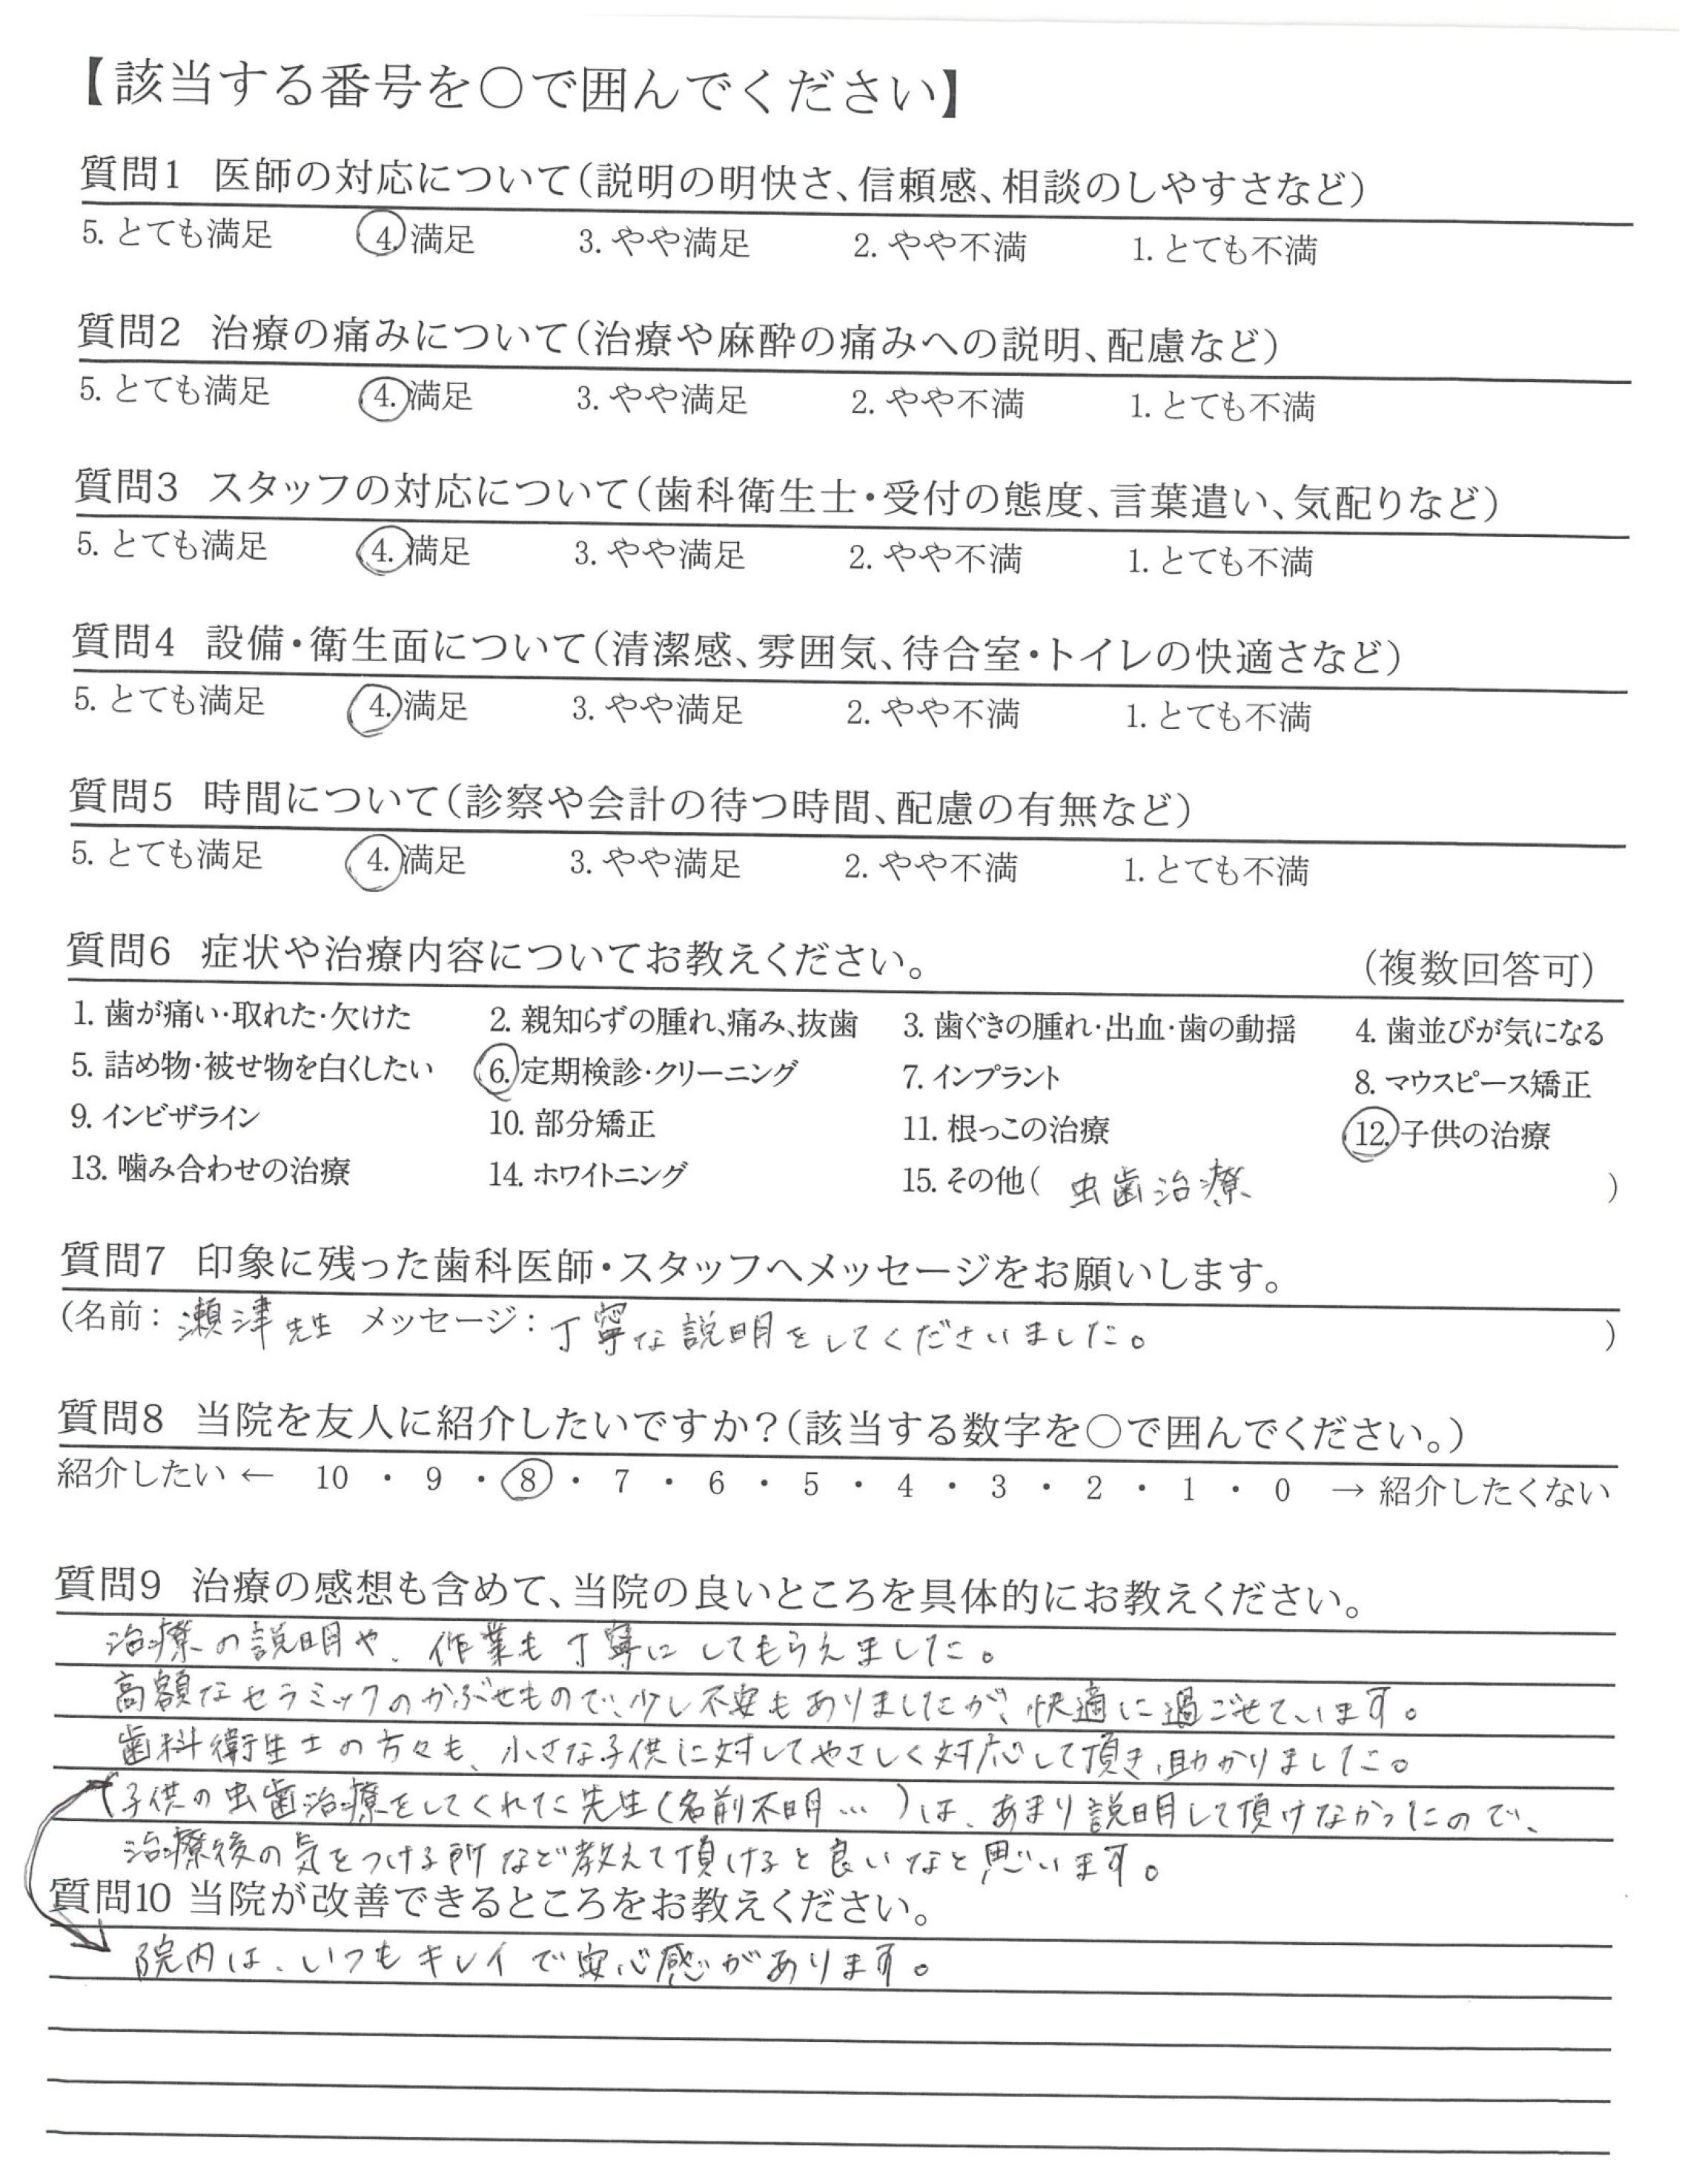 【該当する番号を○で囲んでください】
質問1 医師の対応について(説明の明快さ、信頼感、相談のしやすさなど)
5. とても満足 4. 満足 3. やや満足 2. やや不満 1. とても不満
質問2 治療の痛みについて(治療や麻酔の痛みへの説明、配慮など)
5. とても満足 4. 満足 3. やや満足 2. やや不満 1. とても不満
質問3 スタッフの対応について(歯科衛生士・受付の態度、言葉遣い、気配りなど)
5. とても満足 4. 満足 3. やや満足 2. やや不満 1. とても不満
質問4 設備・衛生面について(清潔感、雰囲気、待合室・トイレの快適さなど)
5. とても満足 4. 満足 3. やや満足 2. やや不満 1. とても不満
質問5 時間について(診察や会計の待つ時間、配慮の有無など)
5. とても満足 4. 満足 3. やや満足 2. やや不満 1. とても不満
質問6 症状や治療内容についてお教えください。 (複数回答可)
1. 歯が痛い・取れた・欠けた 2. 親知らずの腫れ、痛み、抜歯 3. 歯ぐきの腫れ・出血・歯の動揺 4. 歯並びが気になる
5. 詰め物・被せ物を白くしたい 6. 定期検診・クリーニング 7. インプラント 8. マウスピース矯正
9. インビザライン 10. 部分矯正 11. 根っこの治療 12. 子供の治療
13. 噛み合わせの治療 14. ホワイトニング 15. その他( 虫歯治療 )
質問7 印象に残った歯科医師・スタッフへメッセージをお願いします。
(名前: 瀬津先生 メッセージ: 丁寧な説明をしてくださいました。 )
質問8 当院を友人に紹介したいですか?(該当する数字を○で囲んでください。)
紹介したい ← 10 ・ 9 ・ 8 ・ 7 ・ 6 ・ 5 ・ 4 ・ 3 ・ 2 ・ 1 ・ 0 → 紹介したくない
質問9 治療の感想も含めて、当院の良いところを具体的にお教えください。
治療の説明や、作業も丁寧にしてもらえました。
高額なセラミックのかぶせもので、少し不安もありましたが、快適に過ごせています。
歯科衛生士の方々も、小さな子供に対してやさしく対応して頂き、助かりました。
子供の虫歯治療をしてくれた先生(名前不明…)は、あまり説明して頂けなかったので、
治療後の気をつける所など教えて頂けると良いなと思います。
質問10 当院が改善できるところをお教えください。
院内は、いつもキレイで安心感があります。